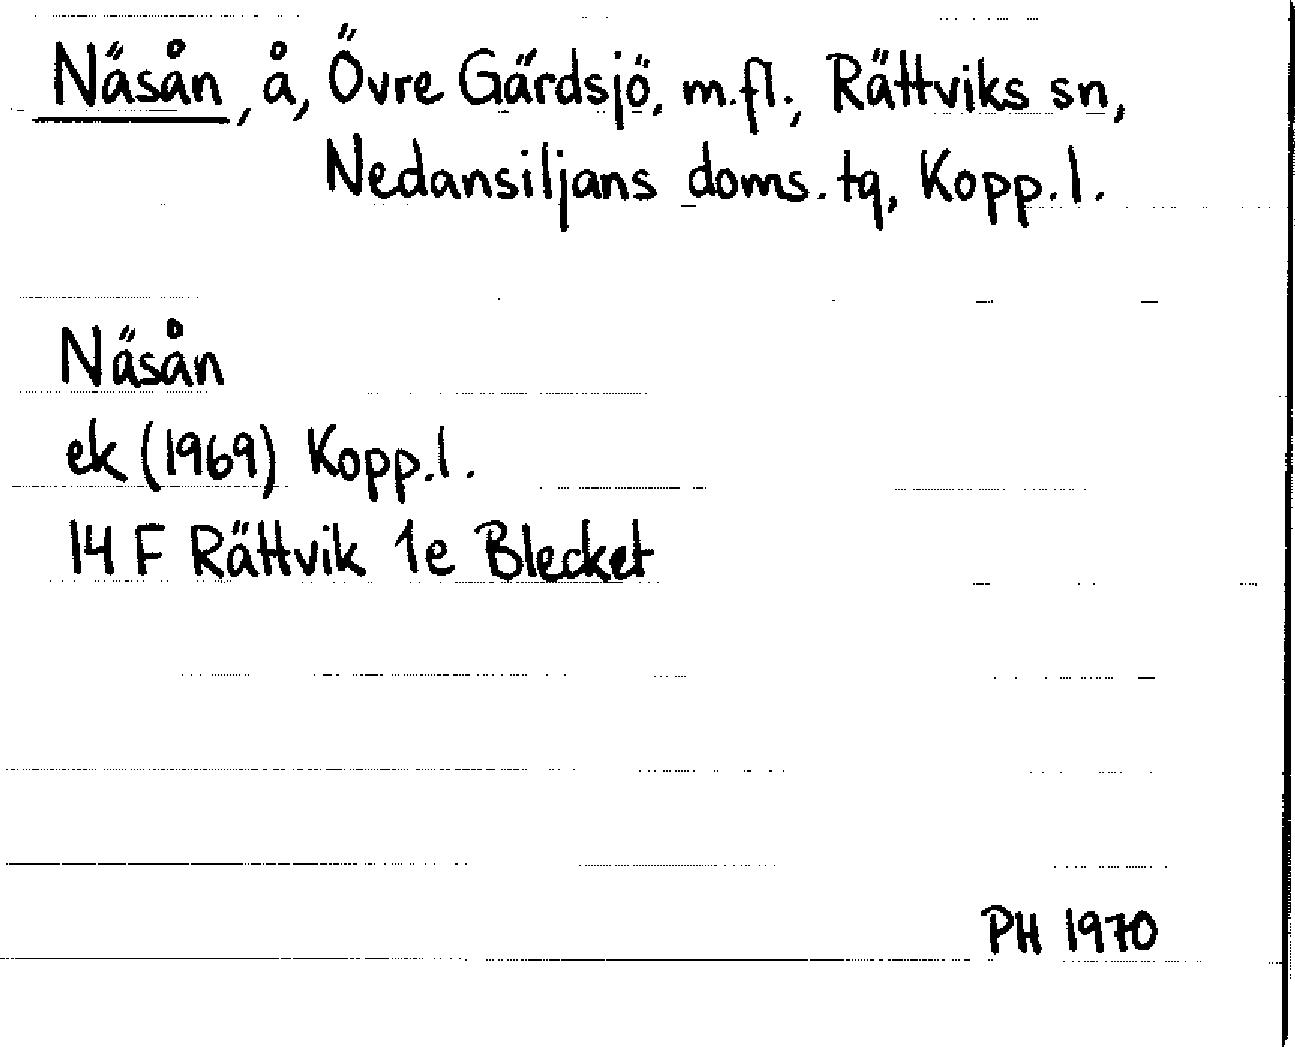 Näsån, å, Övre Gärdsjö, m.fl., Rättviks sn,
Nedansiljans doms. tg, Kopp.l.
Näsån
ek (1969) Kopp.l.
14 F Rättvik 1e Blecket
PH 1970